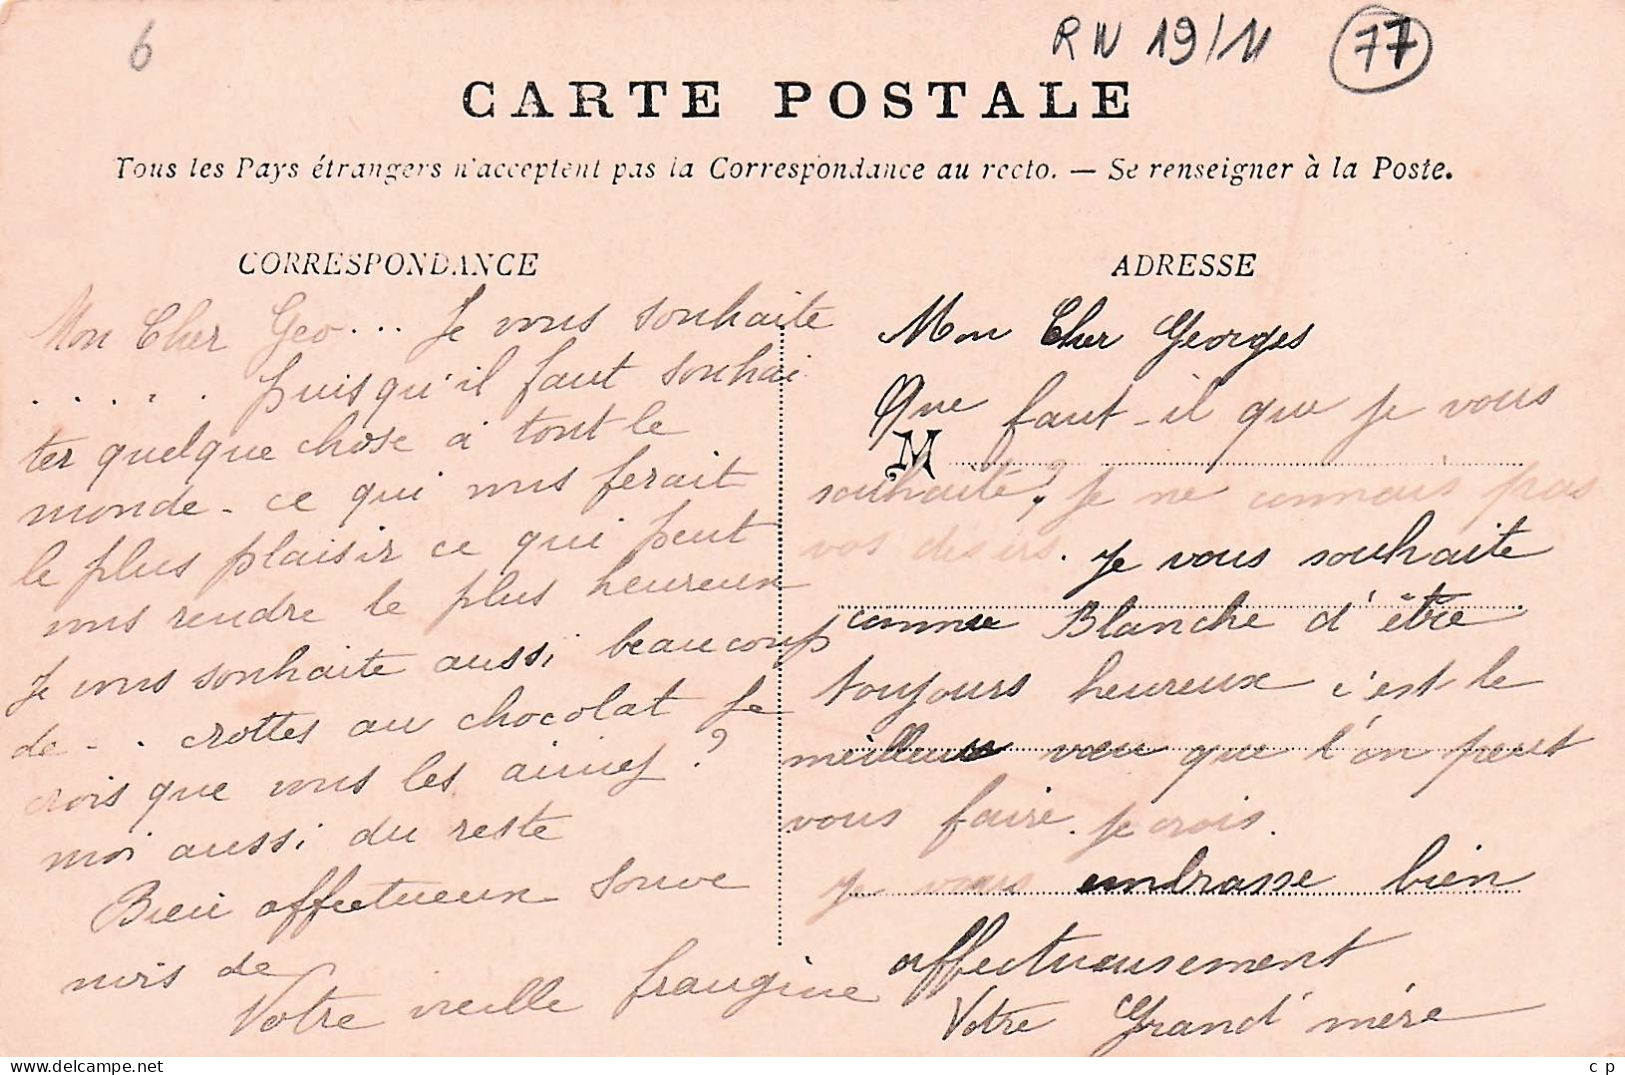 6
RN 19/11
77
CARTE POSTALE
Tous les Pays étrangers n'acceptent pas la Correspondance au recto. — Se renseigner à la Poste.
CORRESPONDANCE
Mon Cher Geo... Je vous souhaite
..... puisqu'il faut souhai
ter quelque chose à tout le
monde - ce qui vous ferait
le plus plaisir ce qui peut
vous rendre le plus heureux
Je vous souhaite aussi beaucoup
de - . crottes au chocolat Je
crois que vous les aimez ?
moi aussi du reste
Bien affectueux souve
nirs de
Votre vieille frangine
ADRESSE
Mon Cher Georges
Que faut-il que je vous
M
souhaite ? Je ne connais pas
vos desirs. Je vous souhaite
comme Blanche d'être
toujours heureux c'est le
meilleur vœu que l'on peut
vous faire. je crois.
Je vous embrasse bien
affectueusement
Votre Grand'mère
delcampe.net
c p